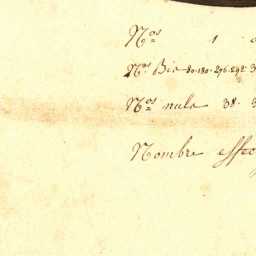 Nos 1
Nos Bis 80·180·296·298·3
Nos nuls 38·
Nombre effec